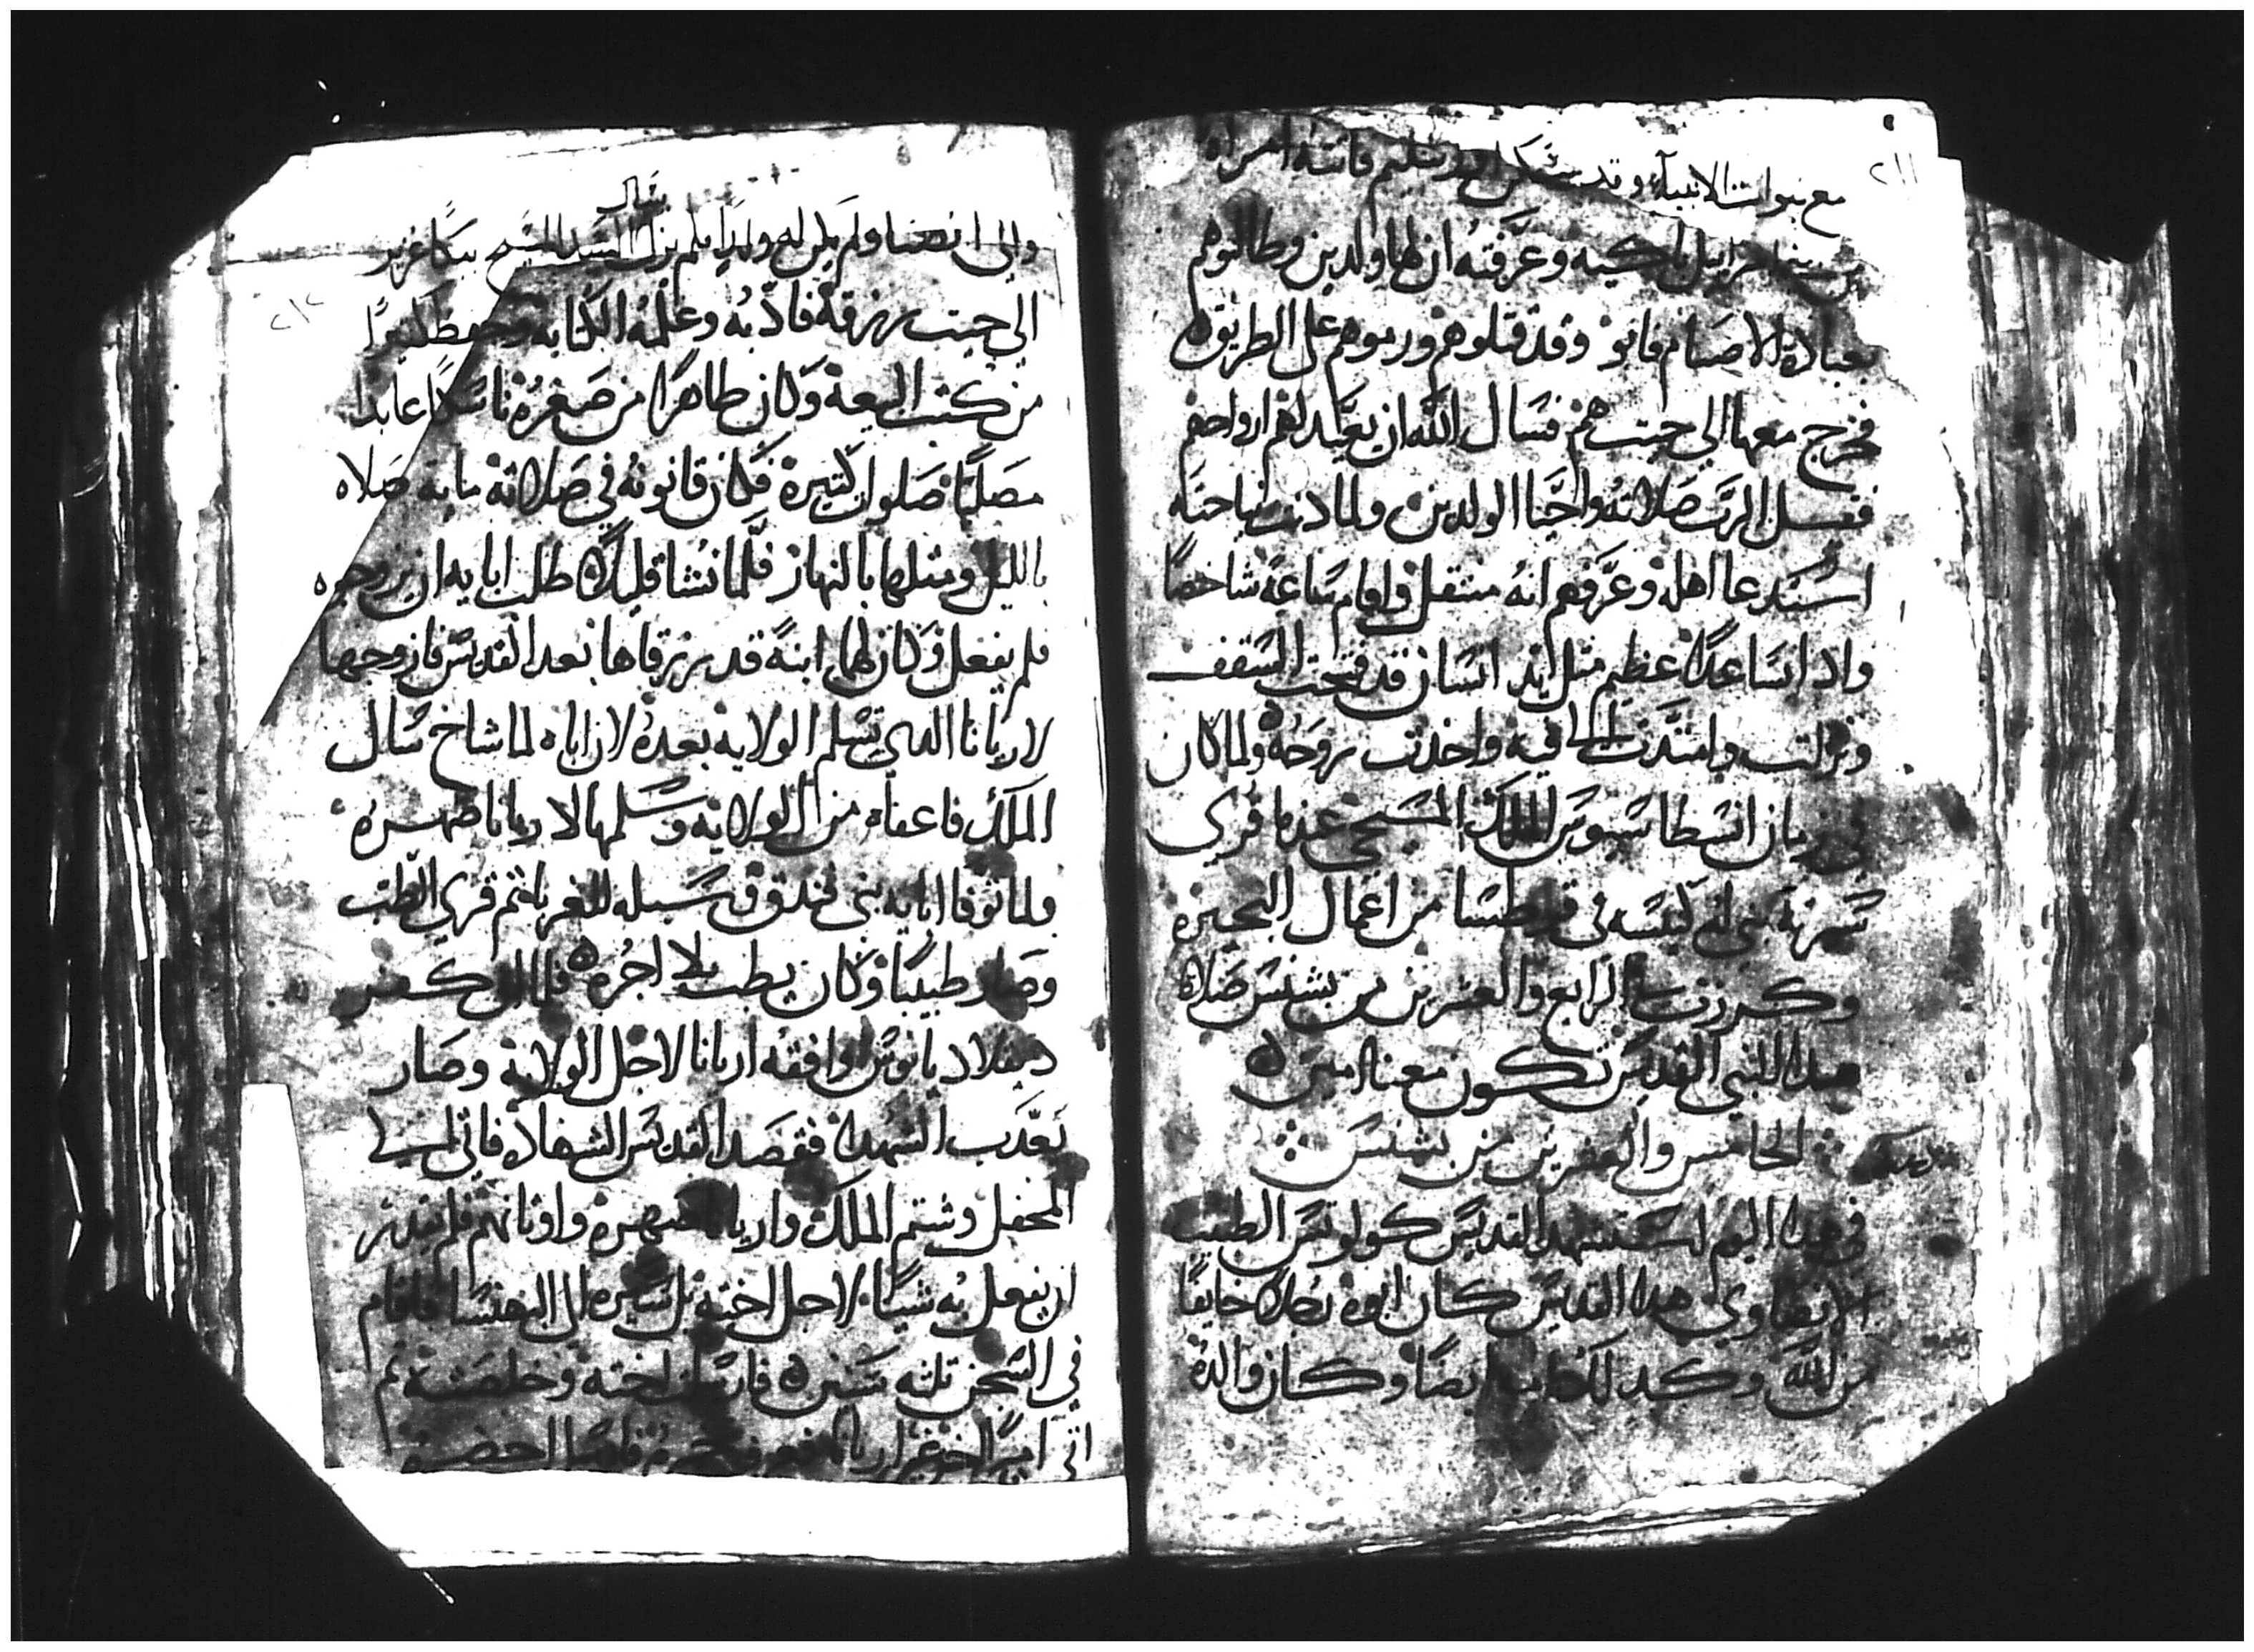 ٢١١
مع نبوات الانبياء وقد سكن اورشليم فاتته امراه
من بني اسراييل باكيه وعرفته ان لها ولدين وطالبوهم
بعبادة الاصنام فابوا وقد قتلوهم ورموهم على الطريق
فخرج معها الي حيت هم فسال الله ان يعيد لهم ارواحهم
فقبل الرب صلاته واحيا الولدين ولما دنت نياحته
استدعا اهله وعرفهم انه منتقل واقام ساعة شاخصا
وادا ساعدا عظيم مثل يد انسان قد فتحت السقف
ونزلت وامتدت الى فيه واخدت روحه ولما كان
في زمان انسطاسيوس الملك المسيحي عندما قري
سيرته بني له كنيسه في قرطسا من اعمال البحيره
وكرزت في الرابع والعشرين من بشنس صلاة
هدا النبي القديس تكون معنا امين
الخامس والعشرين من بشنس
في هدا اليوم استشهد القديس كولوتس الطبيب
الانصناوي هدا القديس كان ابوه رجلا خايفا
من الله وكدلك ايضا وكان والده
٢١٢
والي انصنا ولم يكن له ولدا فلم يزل يسال السيد المسيح بكا غزير
الي حيت رزقه فادبه وعلمه الكتابه وحفظ كثيرا
من كتب البيعة وكان طاهرا من صغره ناسكا عابدا
مصليا صلوات كتيرة فكان قانونه في صلاته ماية صلاه
بالليل ومثلها بالنهار فلما نشا قليلا طلب ابايه ان يزوجوه
فلم يفعل وكان لهما ابنة قد رزقاها بعد القديس فازوجها
لاريانا الدي تسلم الولاية بعده لان اباه لما شاخ سال
الملك فاعفاه من الولاية وسلمها لاريانا صهره
ولما توفا ابايه بني فندق وسبله للغربا ثم قري الطب
وصار طبيبا وكان يطب بلا اجره فلما كفر
دقلاديانوس وافقه اريانا لاجل الولاية وصار
يعدب الشهدا فقصد القديس الشهادة فاتي الى
المحفل وشتم الملك واريانا صهره واوثانهم فلم يقدر
ان يفعل به شيا لاجل اخته بل سيره الي البهنسا فاقام
في السجن تلته سنين فارسلت اخته وخلصته ثم
اتي اميرا اخر غير اريانا فاحضره